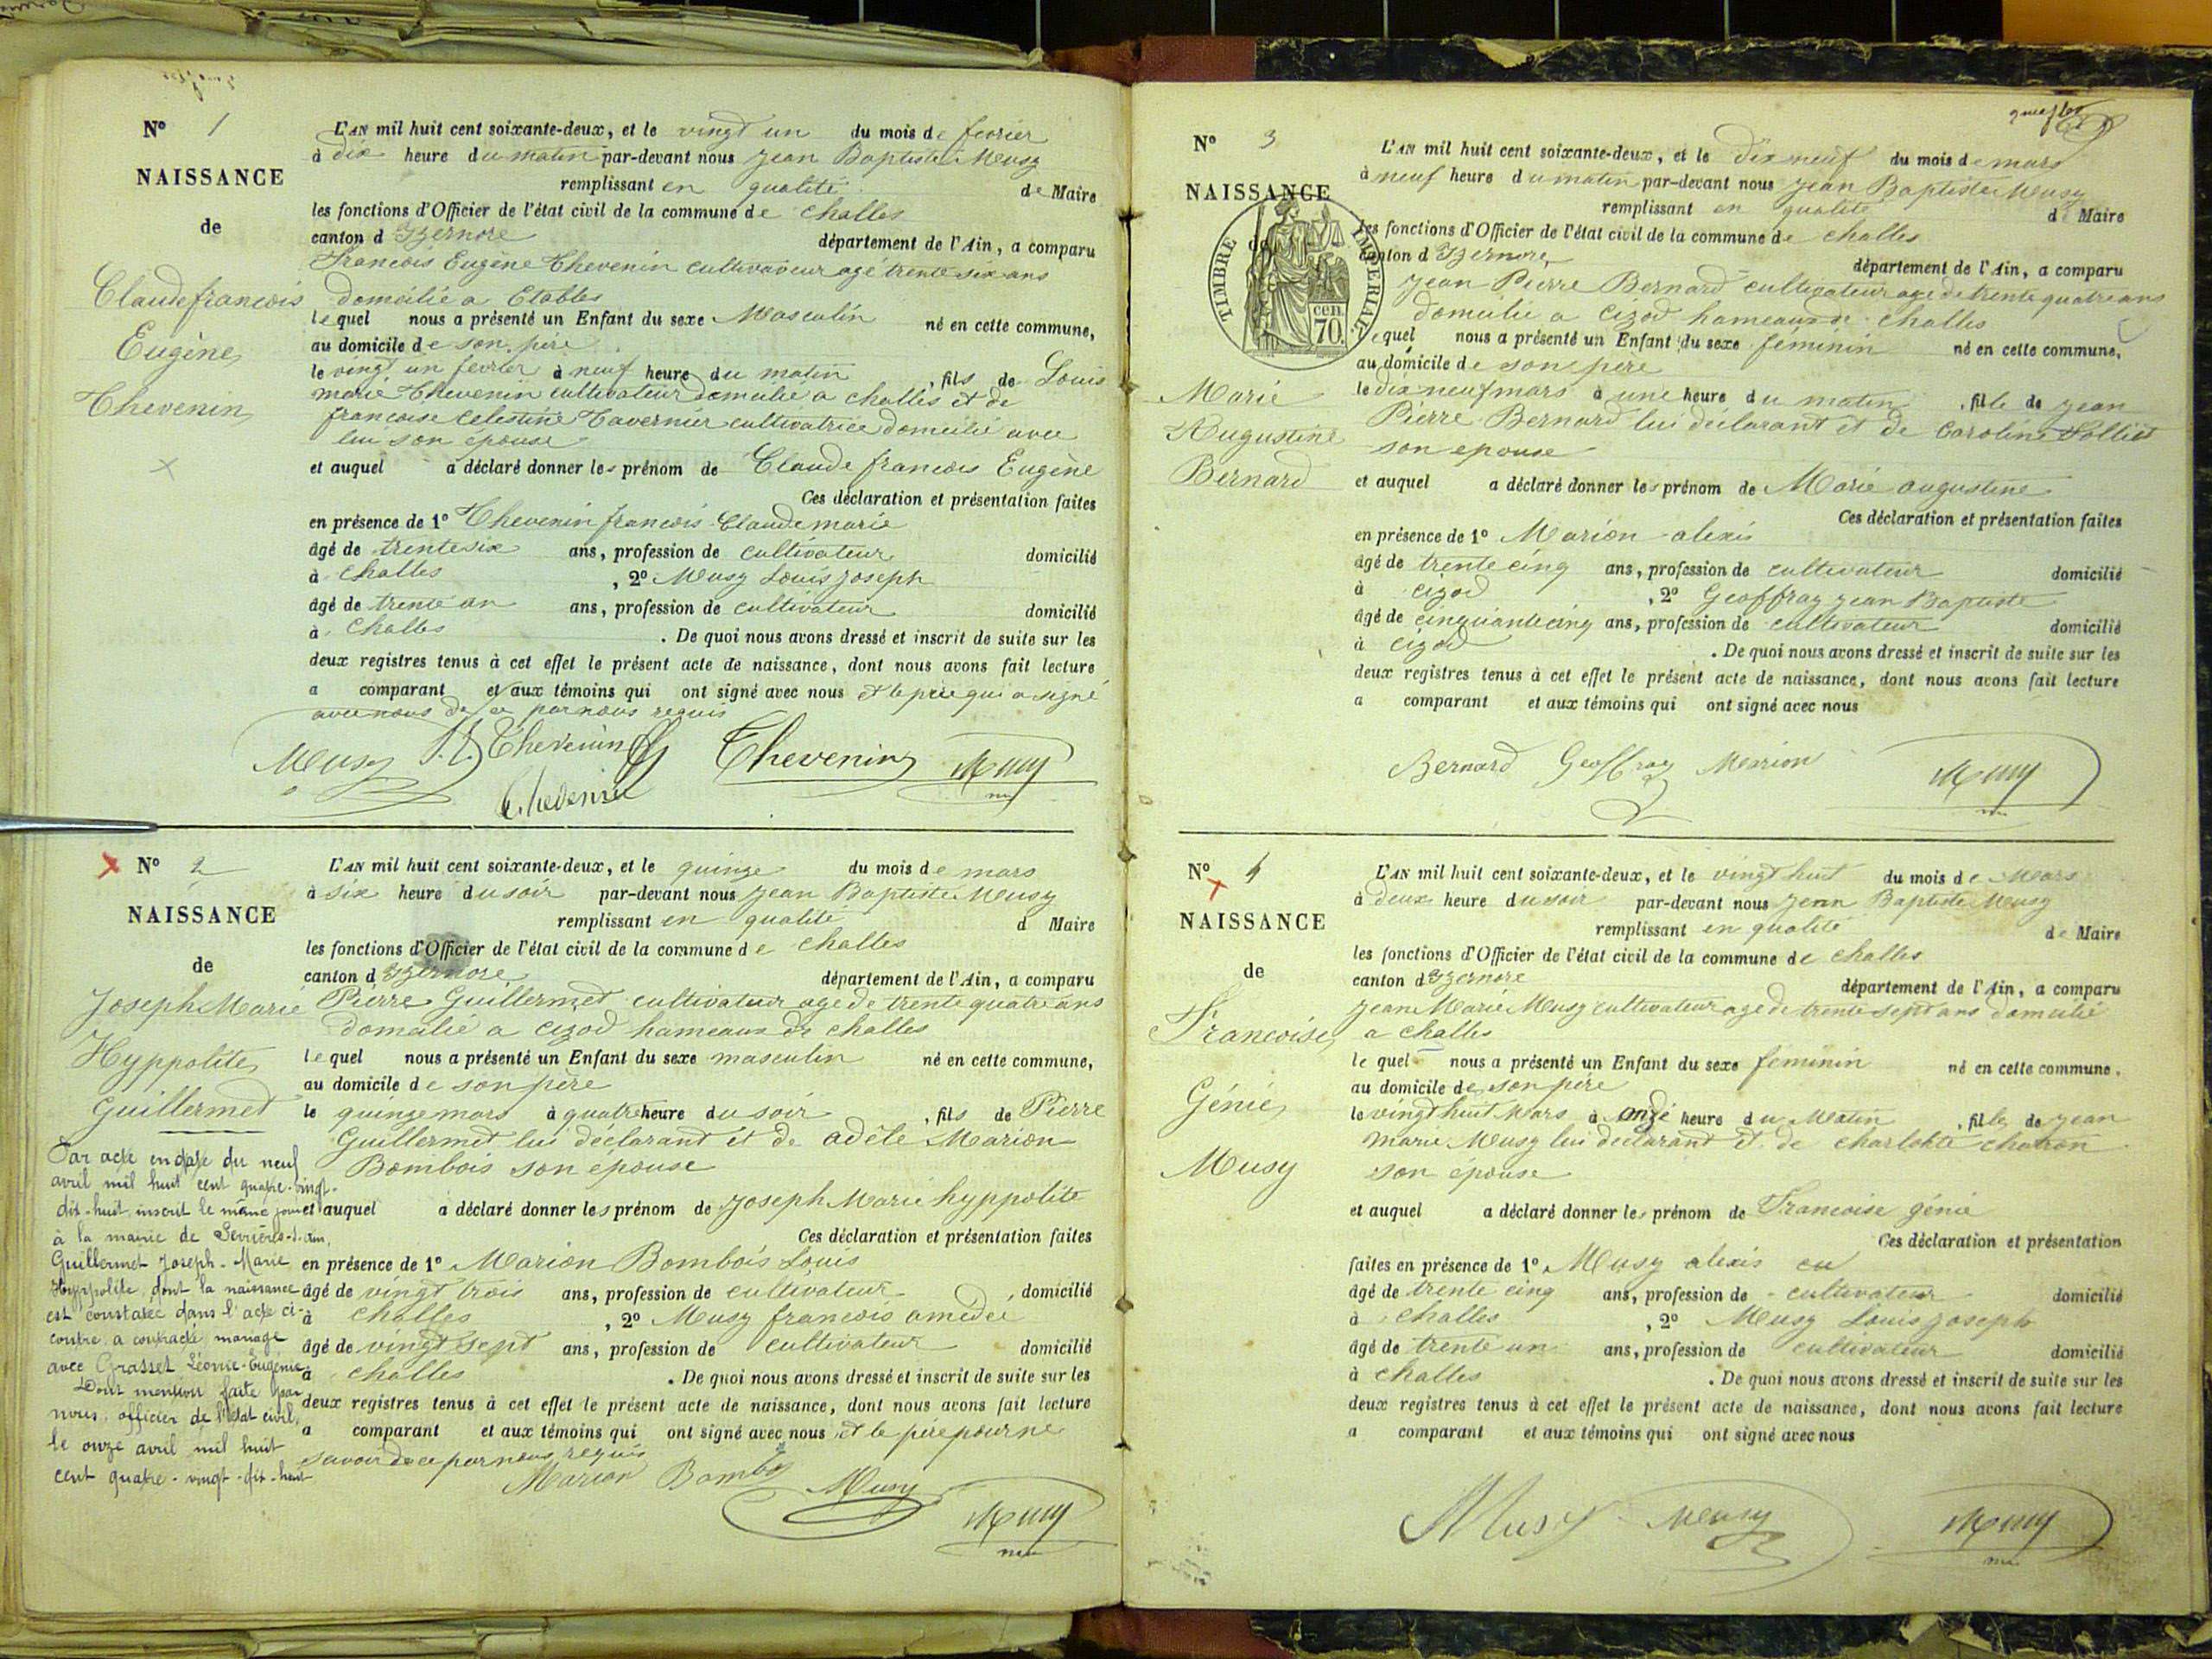 Nº 1
NAISSANCE
de
Claude francois
Eugène
Thevenin
L'AN mil huit cent soixante-deux, et le vingt un du mois de fevrier
à dix heure du matin par-devant nous Jean Baptiste Musy
remplissant en qualité de Maire
les fonctions d'Officier de l'état civil de la commune de challes
canton d Izernore département de l'Ain, a comparu
Francois Eugène Thevenin cultivateur agé trente six ans
domcilié a Etables
lequel nous a présenté un Enfant du sexe Masculin né en cette commune,
au domicile de son père
le vingt un fevrier à neuf heure du matin, fils de Louis
marie Thevenin cultivateur domcilié a challes et de
francoise Celestine Tavernier cultivatrice domcilié avec
lui son épouse
et auquel a déclaré donner les prénom de Claude francois Eugène
Ces déclaration et présentation faites
en présence de 1º Thevenin francois Claude marie
âgé de trente six ans, profession de cultivateur domicilié
à challes, 2º Musy Louis joseph
âgé de trente un ans, profession de cultivateur domicilié
à Challes. De quoi nous avons dressé et inscrit de suite sur les
deux registres tenus à cet effet le présent acte de naissance, dont nous avons fait lecture
a comparant et aux témoins qui ont signé avec nous et le père qui a signé
avec nous de ce par nous requis
Musy Thevenin Thevenin Musy
Thevenin
Nº 2
NAISSANCE
de
Joseph Marie
Hyppolite
Guillermet
L'AN mil huit cent soixante-deux, et le quinze du mois de mars
à six heure du soir par-devant nous Jean Baptiste Musy
remplissant en qualité d Maire
les fonctions d'Officier de l'état civil de la commune de challes
canton d Izernore département de l'Ain, a comparu
Pierre Guillermet cultivateur age de trente quatre ans
domcilié a cizod hameaux de challes
lequel nous a présenté un Enfant du sexe masculin né en cette commune,
au domicile de son père
le quinze mars à quatre heure du soir, fils de Pierre
Guillermet lui déclarant et de adèle Marion
Bombois son épouse
et auquel a déclaré donner les prénom de Joseph Marie hyppolite
Ces déclaration et présentation faites
en présence de 1º Marion Bombois Louis
âgé de vingt trois ans, profession de cultivateur domicilié
à challes, 2º Musy francois amedée
âgé de vingt sept ans, profession de cultivateur domicilié
à challes. De quoi nous avons dressé et inscrit de suite sur les
deux registres tenus à cet effet le présent acte de naissance, dont nous avons fait lecture
a comparant et aux témoins qui ont signé avec nous et le père pour ne
savoir de ce par nous requis
Marion Bombois Musy Musy
Par acte en date du neuf
avril mil huit cent quatre-vingt-
dix-huit, inscrit le même jour
à la mairie de Serrières-s.-Ain,
Guillermet Joseph-Marie
Hyppolite, dont la naissance
est constatée dans l'acte ci-
contre a contracté mariage
avec Grasset Léonie-Eugénie
Dont mention faite par
nous, officier de l'état civil,
le onze avril mil huit
cent quatre-vingt-dix-huit
Nº 3
NAISSANCE
de
TIMBRE IMPERIAL
70 cen.
Marie
Augustine
Bernard
L'AN mil huit cent soixante-deux, et le dix neuf du mois de mars
à neuf heure du matin par-devant nous Jean Baptiste Musy
remplissant en qualité d Maire
les fonctions d'Officier de l'état civil de la commune de challes
canton d Izernore département de l'Ain, a comparu
Jean Pierre Bernard cultivateur age de trente quatre ans
domcilié a cizod hameaux de challes
lequel nous a présenté un Enfant du sexe féminin né en cette commune,
au domicile de son père
le dix neuf mars à une heure du matin, fille de jean
Pierre Bernard lui déclarant et de Caroline Solliet
son epouse
et auquel a déclaré donner les prénom de Marie augustine
Ces déclaration et présentation faites
en présence de 1º Marion alexis
âgé de trente cinq ans, profession de cultivateur domicilié
à cizod, 2º Geoffray jean Baptiste
âgé de cinquante cinq ans, profession de cultivateur domicilié
à cizod. De quoi nous avons dressé et inscrit de suite sur les
deux registres tenus à cet effet le présent acte de naissance, dont nous avons fait lecture
a comparant et aux témoins qui ont signé avec nous
Bernard Geoffray Marion Musy
Nº 4
NAISSANCE
de
Francoise
Génie
Musy
L'AN mil huit cent soixante-deux, et le vingt huit du mois de Mars
à deux heure du soir par-devant nous Jean Baptiste Musy
remplissant en qualité de Maire
les fonctions d'Officier de l'état civil de la commune de challes
canton d Izernore département de l'Ain, a comparu
Jean Marie Musy cultivateur age de trente sept ans domcilié
a challes
le quel nous a présenté un Enfant du sexe féminin né en cette commune.
au domicile de son père
le vingt huit Mars à onze heure du Matin, fille de jean
marie Musy lui declarant et de charlotte charon
son épouse
et auquel a déclaré donner les prénom de Francoise génie
Ces déclaration et présentation
faites en présence de 1º Musy alexis
âgé de trente cinq ans, profession de cultivateur domicilié
à challes, 2º Musy Louis joseph
âgé de trente un ans, profession de cultivateur domicilié
à challes. De quoi nous avons dressé et inscrit de suite sur les
deux registres tenus à cet effet le présent acte de naissance, dont nous avons fait lecture
a comparant et aux témoins qui ont signé avec nous
Musy Musy Musy